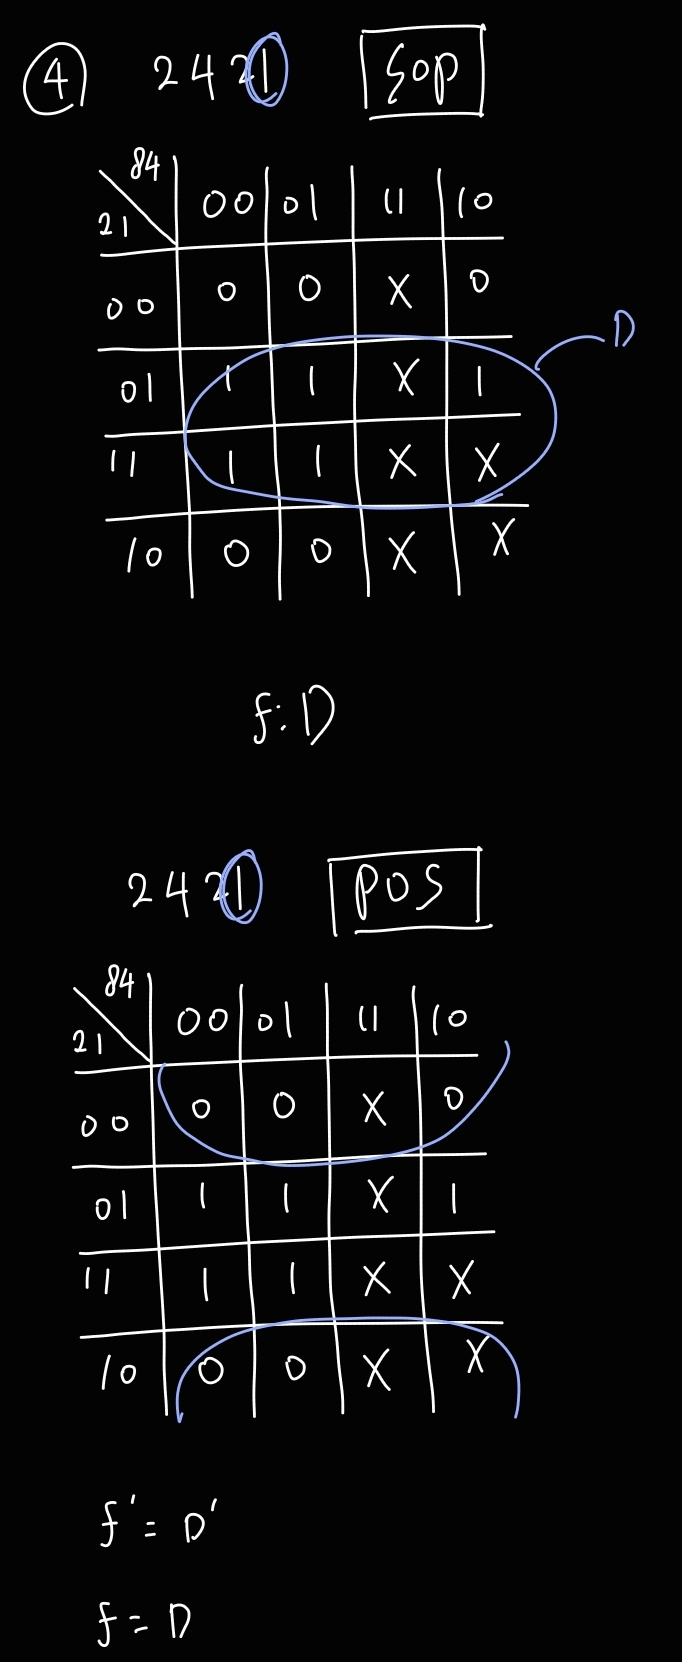 ④ 2421 SOP
84
21 00 01 11 10
00 0 0 X 0
01 1 1 X 1
11 1 1 X X
10 0 0 X X
D
f: D
2421 POS
84
21 00 01 11 10
00 0 0 X 0
01 1 1 X 1
11 1 1 X X
10 0 0 X X
f' = D'
f = D